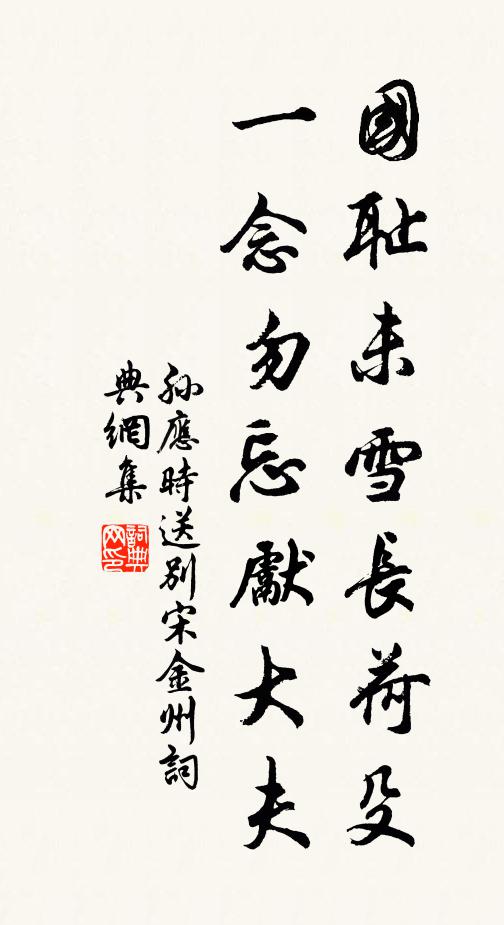 國耻未雪長荷殳
一念勿忘獻大夫
孫應時送別宋金州詞
典網集
詞典
网印